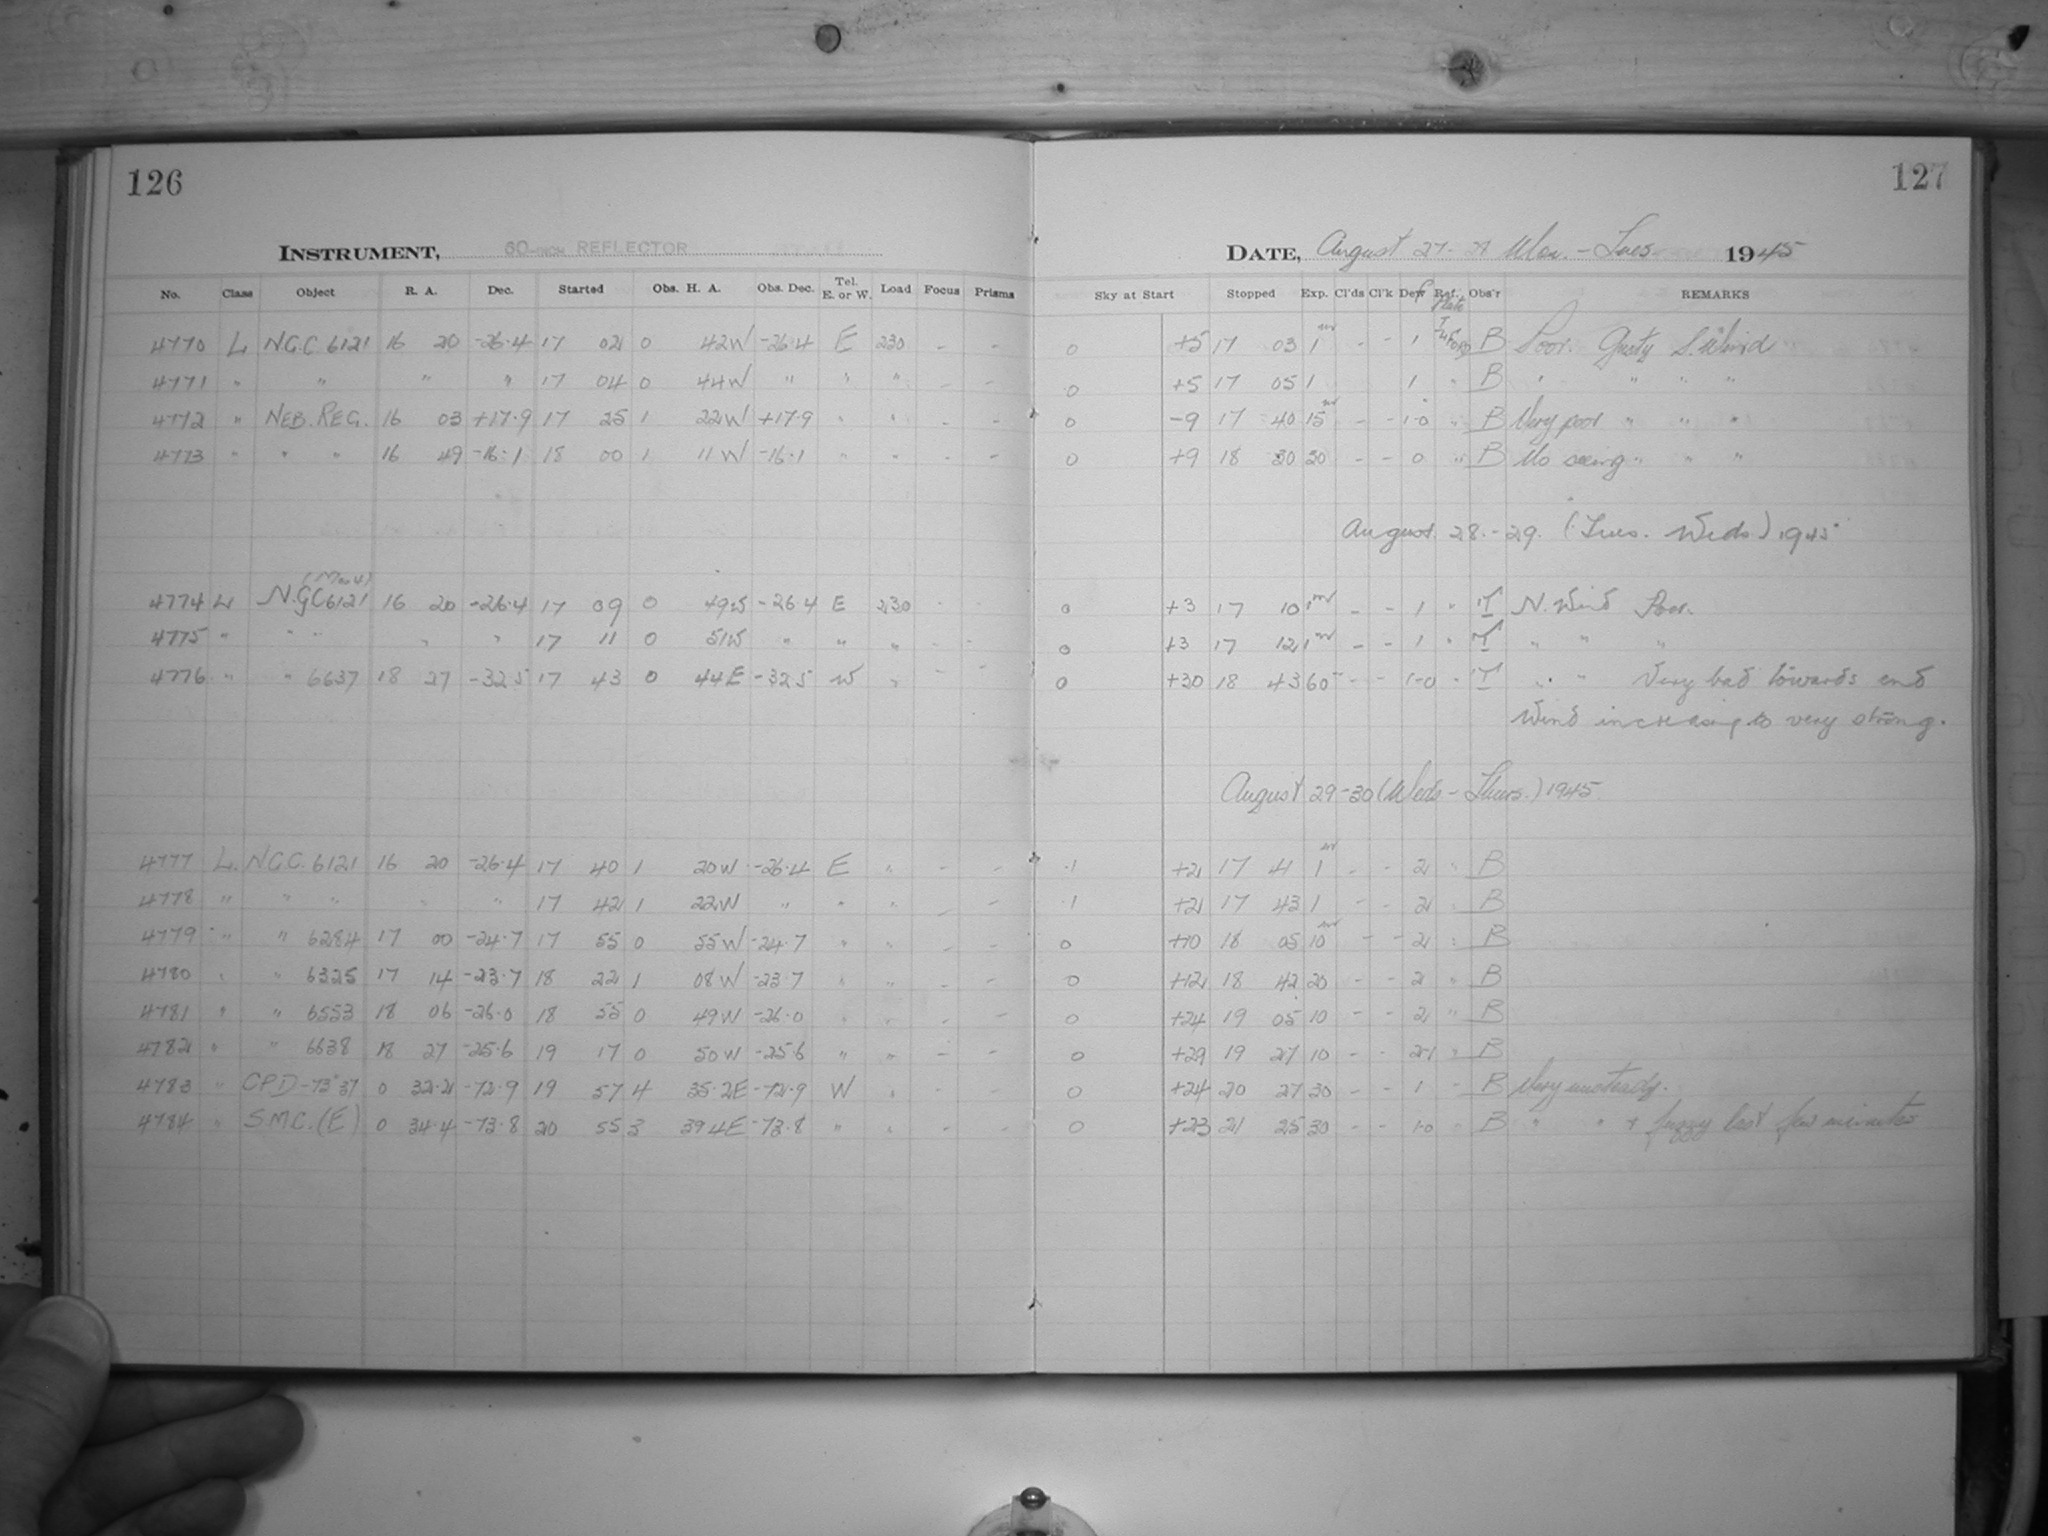 126
127
INSTRUMENT, 60-INCH REFLECTOR
DATE, August 27- Mon. - Tues 1945
No. Class Object R. A. Dec. Started Obs. H. A. Obs. Dec. Tel. E. or W. Load Focus Prisms Sky at Start Stopped Exp. Cl'ds Cl'k Dew Ref. Obs'r REMARKS
Plate
4770 L NGC 6121 16 20 -26.4 17 02 0 42W -26.4 E 230 - - 0 +5 17 03 1m - - 1 B Poor. Gusty S. Wind
4771 " " " " 17 04 0 44W " " " - - 0 +5 17 05 1 1 " B " " " "
4772 " NEB. REG. 16 03 +17.9 17 25 1 22W +17.9 " " - - 0 -9 17 40 15m - - 1-0 " B Very poor " " "
4773 " " " 16 49 -16.1 18 00 1 11W -16.1 " " - - 0 +9 18 30 30 - - 0 " B No seeing " " "
August 28.-29. (Tues. Weds) 1945
4774 L N.GC 6121 16 20 -26.4 17 09 0 49W -26.4 E 230 - - 0 +3 17 10 1m - - 1 " T N. Wind Poor.
4775 " " " " " 17 11 0 51W " " " - - 0 +3 17 12 1m - - 1 " T " " "
4776 " " 6637 18 27 -32.5 17 43 0 44E -32.5 W " - - 0 +30 18 43 60 - - 1-0 " T " " Very bad towards end
Wind increasing to very strong.
August 29-30 (Weds - Thurs.) 1945
4777 L. NGC. 6121 16 20 -26.4 17 40 1 20W -26.4 E " - - .1 +2 17 41 1m - - 2 " B
4778 " " " " " 17 42 1 22W " " " - - .1 +2 17 43 1 - - 2 " B
4779 " " 6284 17 00 -24.7 17 55 0 55W -24.7 " " - - 0 +10 18 05 10m - - 2 " B
4780 " " 6325 17 14 -23.7 18 22 1 08W -23.7 " " - - 0 +12 18 42 20 - - 2 " B
4781 " " 6553 18 06 -26.0 18 55 0 49W -26.0 " " - - 0 +24 19 05 10 - - 2 " B
4782 " " 6638 18 27 -25.6 19 17 0 50W -25.6 " " - - 0 +29 19 27 10 - - 2-1 " B
4783 " CPD -73°37 0 32.2 -72.9 19 57 4 35.2E -72.9 W " - - 0 +24 20 27 30 - - 1 " B Very unsteady.
4784 " S.M.C. (E) 0 34.4 -73.8 20 55 3 39.4E -73.8 " " - - 0 +23 21 25 30 - - 1-0 " B " " + fuzzy last few minutes